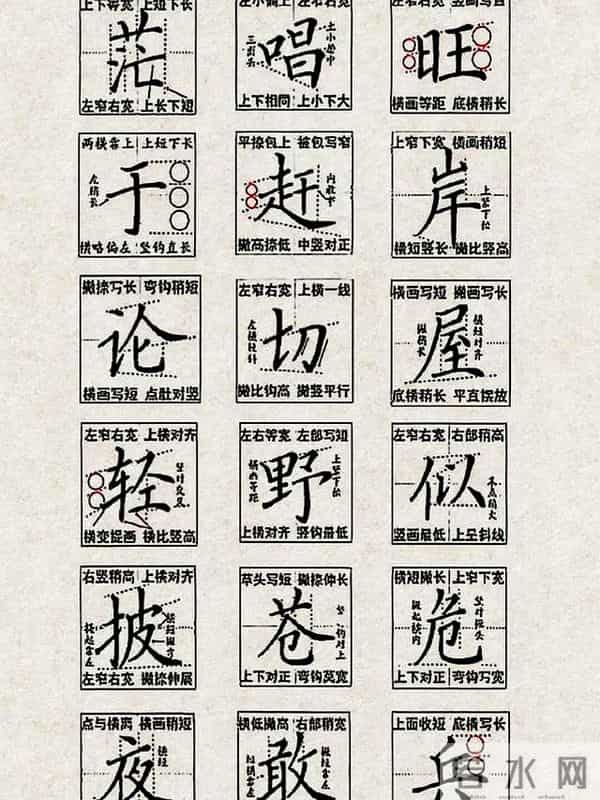 上下等宽 上短下长
左右宽窄
茫
左窄右宽 上长下短
唱
三出头
上下相同 上小下大
旺
横画等距 底横稍长
两横靠上 上短下长
于
左稍长
横略偏左 竖钩直长
平捺包上 被包写窄
赶
撇高捺低 中竖对正
上窄下宽 横画稍短
岸
上紧下松
横短竖长 撇比竖高
撇捺写长 弯钩稍短
论
横画写短 点肚对竖
左窄右宽 上横一线
切
撇比钩高 撇竖平行
横画写短 撇画写长
屋
横短对齐
撇稍长
底横稍长 平直摆放
左窄右宽 上横对齐
轻
横变提画 横比竖高
左右等宽 左部写短
野
上紧下松
横画等距
上横对齐 竖钩最低
左窄右宽 右部稍高
似
末点稍大
竖画最低 上呈斜线
右竖稍高 上横对齐
披
左窄右宽 撇捺伸展
草头写短 撇捺伸长
苍
上下对正 弯钩莫宽
横短撇长 上窄下宽
危
上下对正 弯钩写宽
点与横离 横画稍短
夜
横短
横低撇高 右部稍宽
敢
短横靠左
撇收左
上面收短 底横写长
兵
谷水网